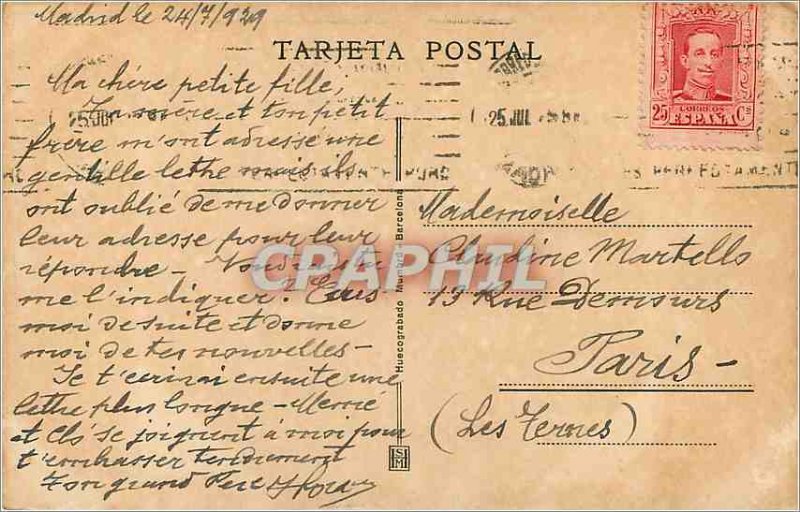 Madrid le 24/7/929
TARJETA POSTAL
Ma chère petite fille,
Ta mère et ton petit
frère m'ont adressé une
gentille lettre mais ils
ont oublié de me donner
leur adresse pour leur
répondre - Voudrais tu
me l'indiquer? Ecris
moi de suite et donne
moi de tes nouvelles -
Je t'écrirai ensuite une
lettre plus longue -
et se joignent à moi pour
t'embrasser tendrement
Ton grand Père
25 JUL
25 JUL
PERFECTAMENTE
25 CORREOS Cs
ESPAÑA
Huecograbado Mumbrú - Barcelona
Mademoiselle
Claudine Martello
13 Rue Demours
Paris -
(Les Ternes)
CPAPHIL